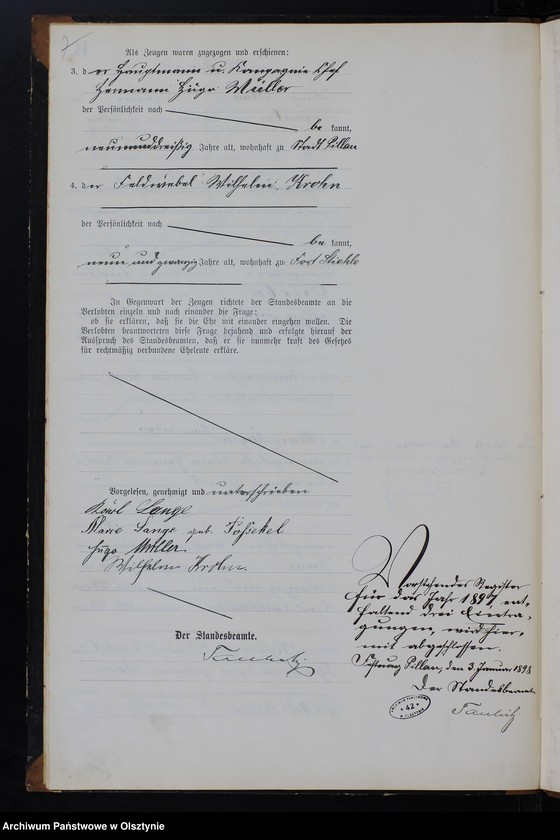 Als Zeugen waren zugezogen und erschienen:
3. der Hauptmann u. Kompagnie Chef
Hermann Hugo Müller
der Persönlichkeit nach
be kannt,
neununddreißig Jahre alt, wohnhaft zu Stadt Pillau
4. der Feldwebel Wilhelm Krohn
der Persönlichkeit nach
be kannt,
neun und zwanzig Jahre alt, wohnhaft zu Fort Stiehle
In Gegenwart der Zeugen richtete der Standesbeamte an die
Verlobten einzeln und nach einander die Frage:
ob sie erklären, daß sie die Ehe mit einander eingehen wollen. Die
Verlobten beantworteten diese Frage bejahend und erfolgte hierauf der
Ausspruch des Standesbeamten, daß er sie nunmehr kraft des Gesetzes
für rechtmäßig verbundene Eheleute erkläre.
Vorgelesen, genehmigt und unterschrieben
Karl Lange
Marie Lange geb.
Hugo Müller
Wilhelm Krohn
Der Standesbeamte.
Vorstehendes Register
für das Jahr 1897, ent-
haltend drei Eintra-
gungen, wird hier-
mit abgeschlossen.
Festung Pillau, den 3. Januar 1898
Der Standesbeamte
42
Archiwum Państwowe w Olsztynie